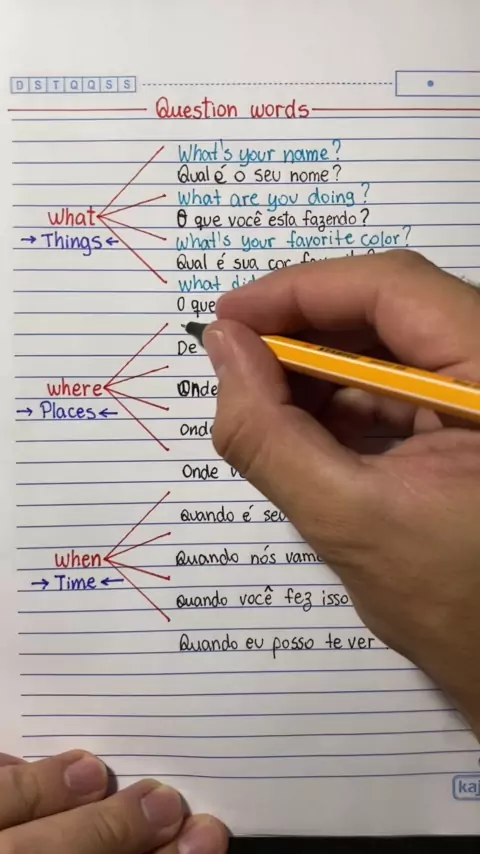 D S T Q Q S S
Question words
What's your name?
Qual é o seu nome?
What are you doing?
O que você esta fazendo?
what
→ Things ←
what's your favorite color?
Qual é sua cor
what did
O que
De
where
→ Places ←
Onde
Onde
Quando é seu
when
→ Time ←
Quando nós vamo
Quando você fez isso
Quando eu posso te ver?
kaj